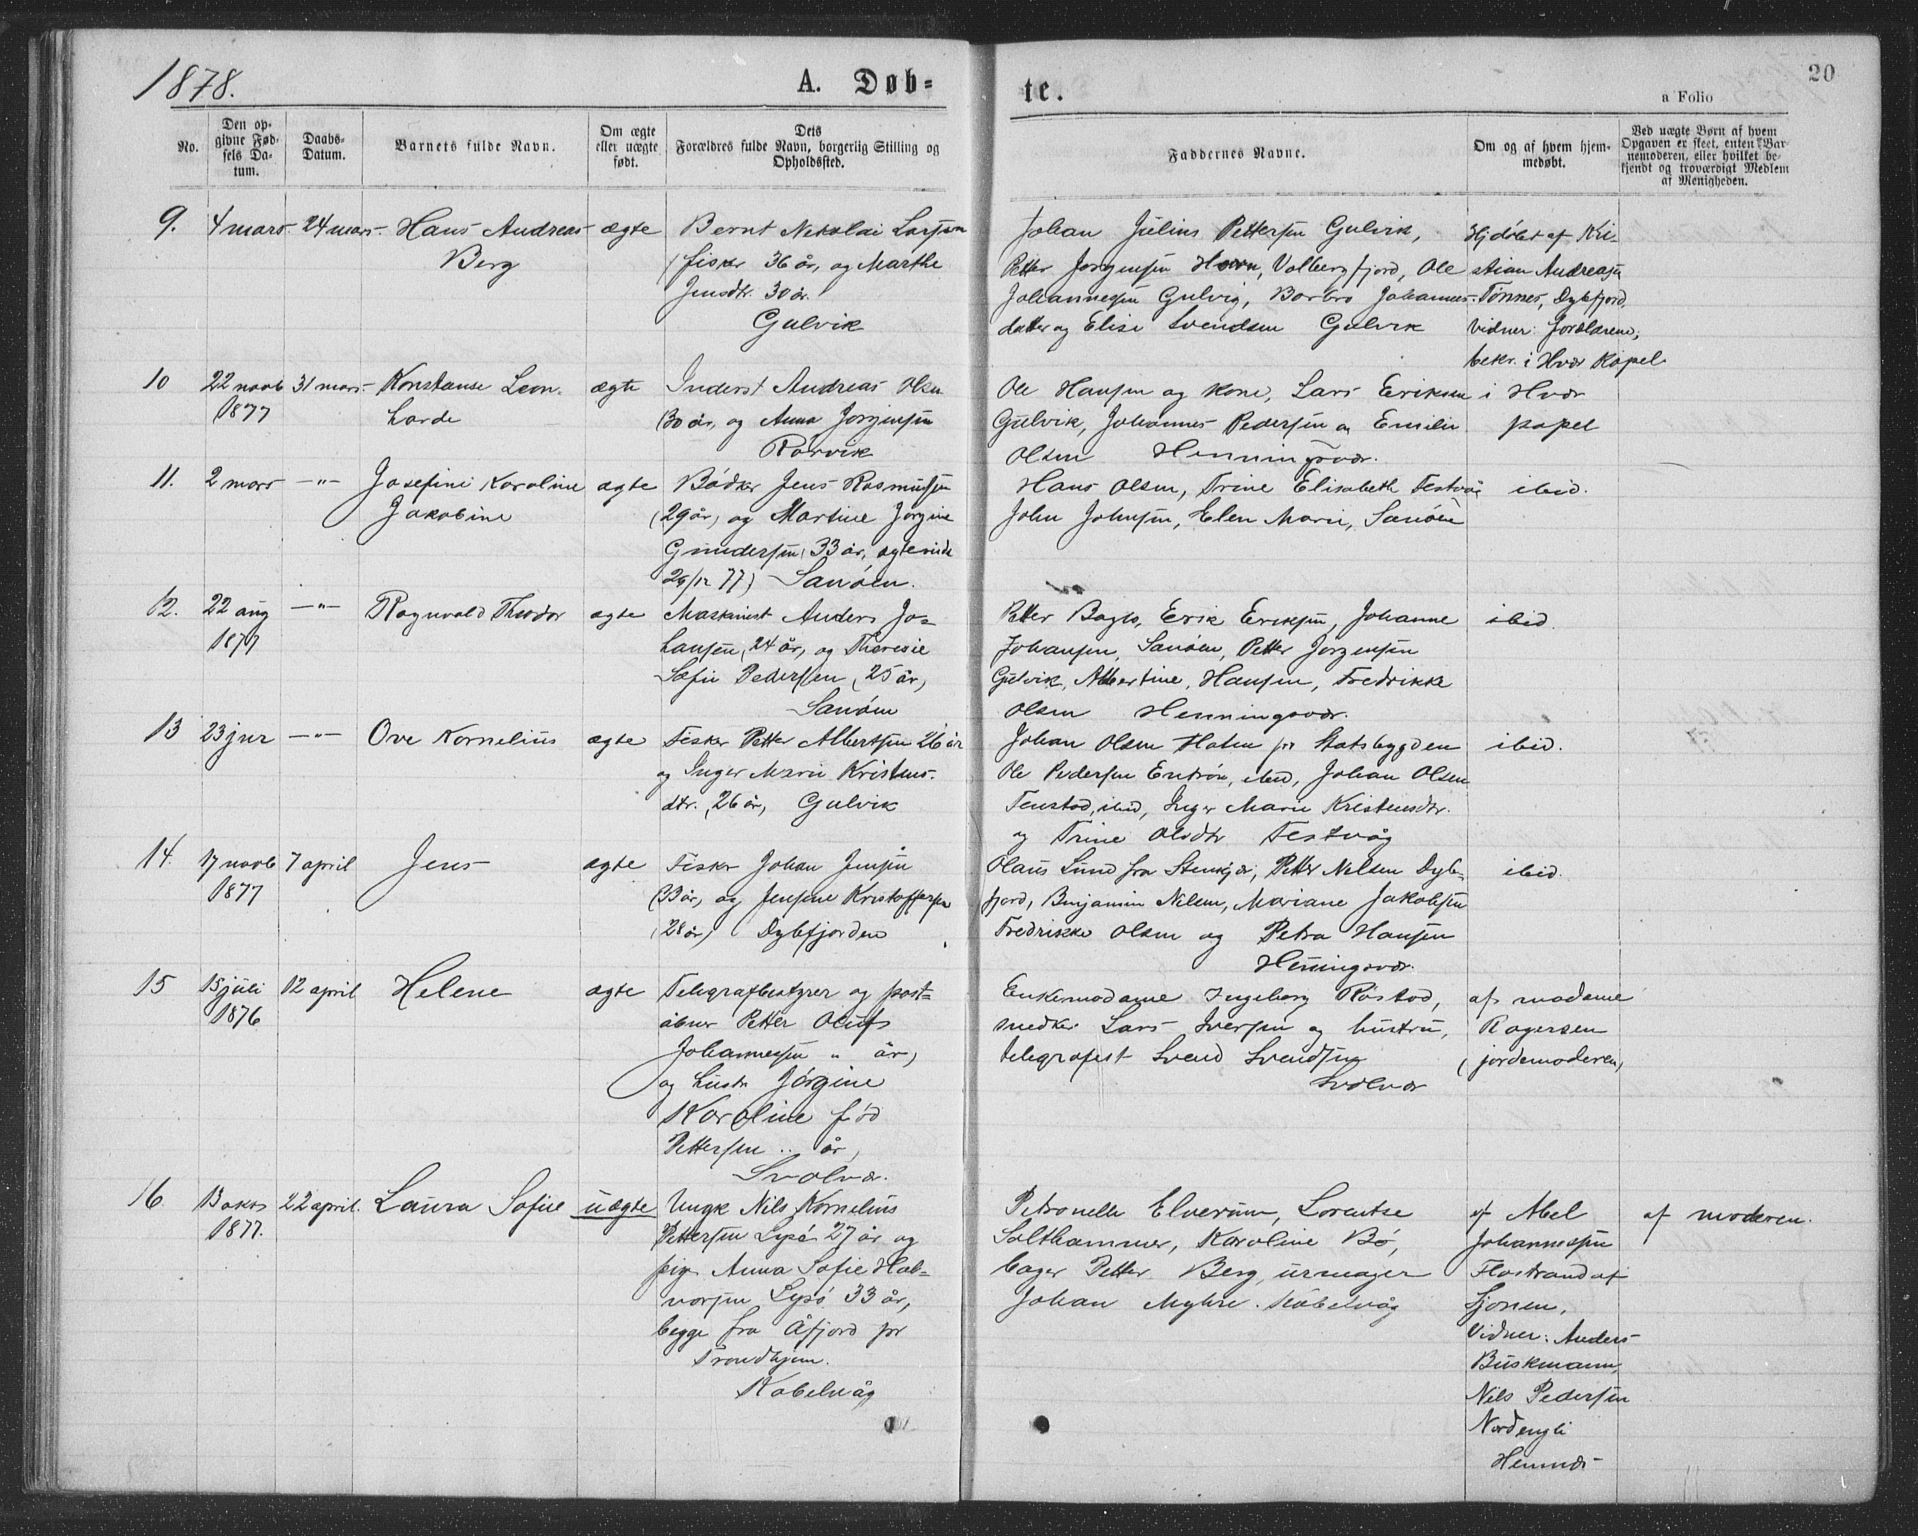 1878.
A. Døb=
te.
20
a Folio
No.
Den op-
givne Fød-
sels Da-
tum.
Daabs-
Datum.
Barnets fulde Navn.
Om ægte
eller uægte
født.
Dets
Forældres fulde Navn, borgerlig Stilling og
Opholdssted.
Faddernes Navne.
Om og af hvem hjem-
medøbt.
Ved uægte Børn af hvem
Opgaven er skeet, enten Bar-
nemoderen, eller hvilket be-
kjendt og troværdigt Medlem
af Menigheden.
9. 4 mars 24 mars Hans Andreas ægte
Berg
Bernt Nekolai Larsen
(fisker 36 år, og Marthe
Jensdtr. 30 år.
Gulvik
Johan Julius Pettersen Gulvik,
Petter Jørgensen Hovn, Valbergfjord, Ole
Johannesen Gulvig, Barbro Johannes-
datter og Elise Svendsen Gulvik
Hjdøbt af Kri-
stian Andreasen
Tønnes, Dybfjord,
Vidner: Forældrene,
bekr. i Hvær Kapel
10 22 novb 31 mars Konstanse Leon- ægte
1877 harde
Inderst Andreas Olsen
(30 år, og Anna Jørgensen
Rørvik
Ole Hansen og kone, Lars Eriksen
Gulvik, Johannes Pedersen og Emilie
Olsen Henningsvær.
i Hvær
kapel
11. 2 mars —"— Josefine Karoline ægte
Jakobine
Bødker Jens Rasmussen
(29 år) og Martine Jørgine
Gundersen (33 år, ægteviede
26/12 77) Sanøen.
Hans Olsen, Trine Elisabeth Festvåg
John Johnsen, Elen Marie, Sanøen
ibid.
12. 22 aug —"— Ragnvald Theodor ægte
1877
Maskinist Anders Jo-
hansen, 24 år, og Theresie
Sofie Pedersen, (25 år,
Sanøen
Petter Bagls, Erik Eriksen, Johanne
Johansen, Sanøen, Petter Jørgensen
Gulvik, Albertine, Hansen, Fredrikke
Olsen Henningsvær.
ibid.
13 23 jnr —"— Ove Kornelius ægte
Fisker Petter Albertsen 26 år
og Inger Marie Kristens-
dtr. 26 år, Gulvik
Johan Olsen Haten pr Statsbygden
Ole Pedersen Entrøn, ibid, Johan Olsen
Tenstad, ibid, Inger Marie Kristensdtr.
og Trine Olsdtr Festvåg
ibid.
14. 17 novb 7 april Jens ægte
1877
Fisker Johan Jensen
(33 år, og Jensine Kristoffersen
(28 år) Dybfjorden
Olaus Lund fra Stenkjær, Petter Nelsen Dyb-
fjord, Benjamin Nilsen, Mariane Jakobsen
Fredrikke Olsen og Petra Hansen
Henningsvær.
ibid.
15 15 juli 12 april Helene ægte
1876
Telegrafbestyrer og post-
åbner Petter Olufs
Johannessen " år,
og hustr Jørgine
Karoline fød
Pettersen " år,
Svolvær.
Enkemadame Ingeborg Røstad,
snedker Lars Iversen og hustru,
telegrafist Svend Svendsen
Svolvær
af madame
Ragersen
(jordemoderen)
16 13 oktr 22 april. Laura Sofie uægte
1877.
Ungk Nils Kornelius
Pettersen Lysø 27 år og
pige Anna Sofie Hal-
vorsen Lysø 33 år,
begge fra Åfjord pr
Trondhjem.
Kabelvåg
Petronelle Elverum, Lorentse
Salthammer, Karoline Bø,
bager Petter Berg, urmager
Johan Myhre. Kabelvåg
af Abel
Johannesen
Flostrand af
Sjonen,
Vidner: Anders
Buskmann,
Nils Pedersen
Nordengli
Hemnæs
af moderen.